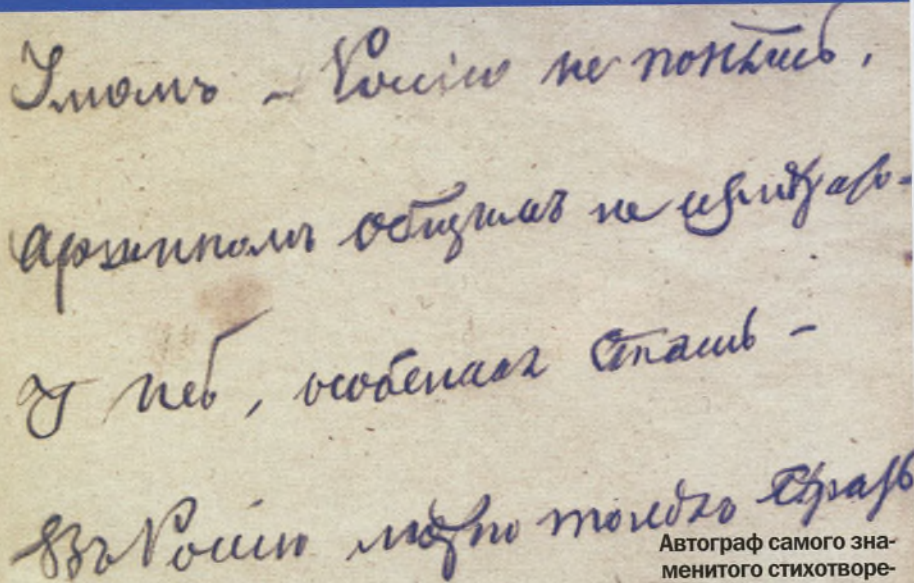 Умомъ – Россію не понять,
Аршиномъ общимъ не измѣрить –
У ней, особенная стать –
Въ Россію можно только вѣрить
Автограф самого зна-
менитого стихотворе-